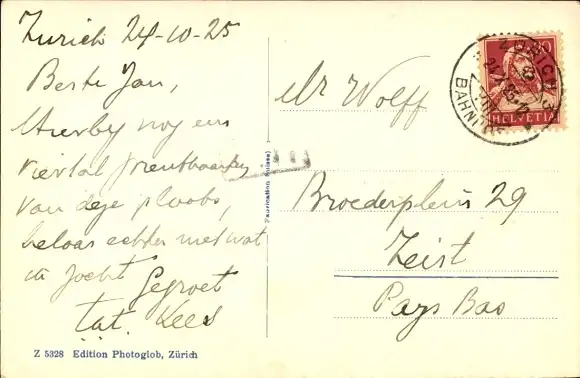 Zurich 24-10-25
Beste Jan,
Hierby nog een
viertal prentkaarten
van deze plaats,
helaas echter niet wat
u zocht
Gegroet
tàt. Kees
Z 5328 Edition Photoglob, Zürich
Fabrication Suisse)
Mr Wolff
Broederplein 29
Zeist
Pays Bas
ZÜRICH
BAHNHOF
HELVETIA